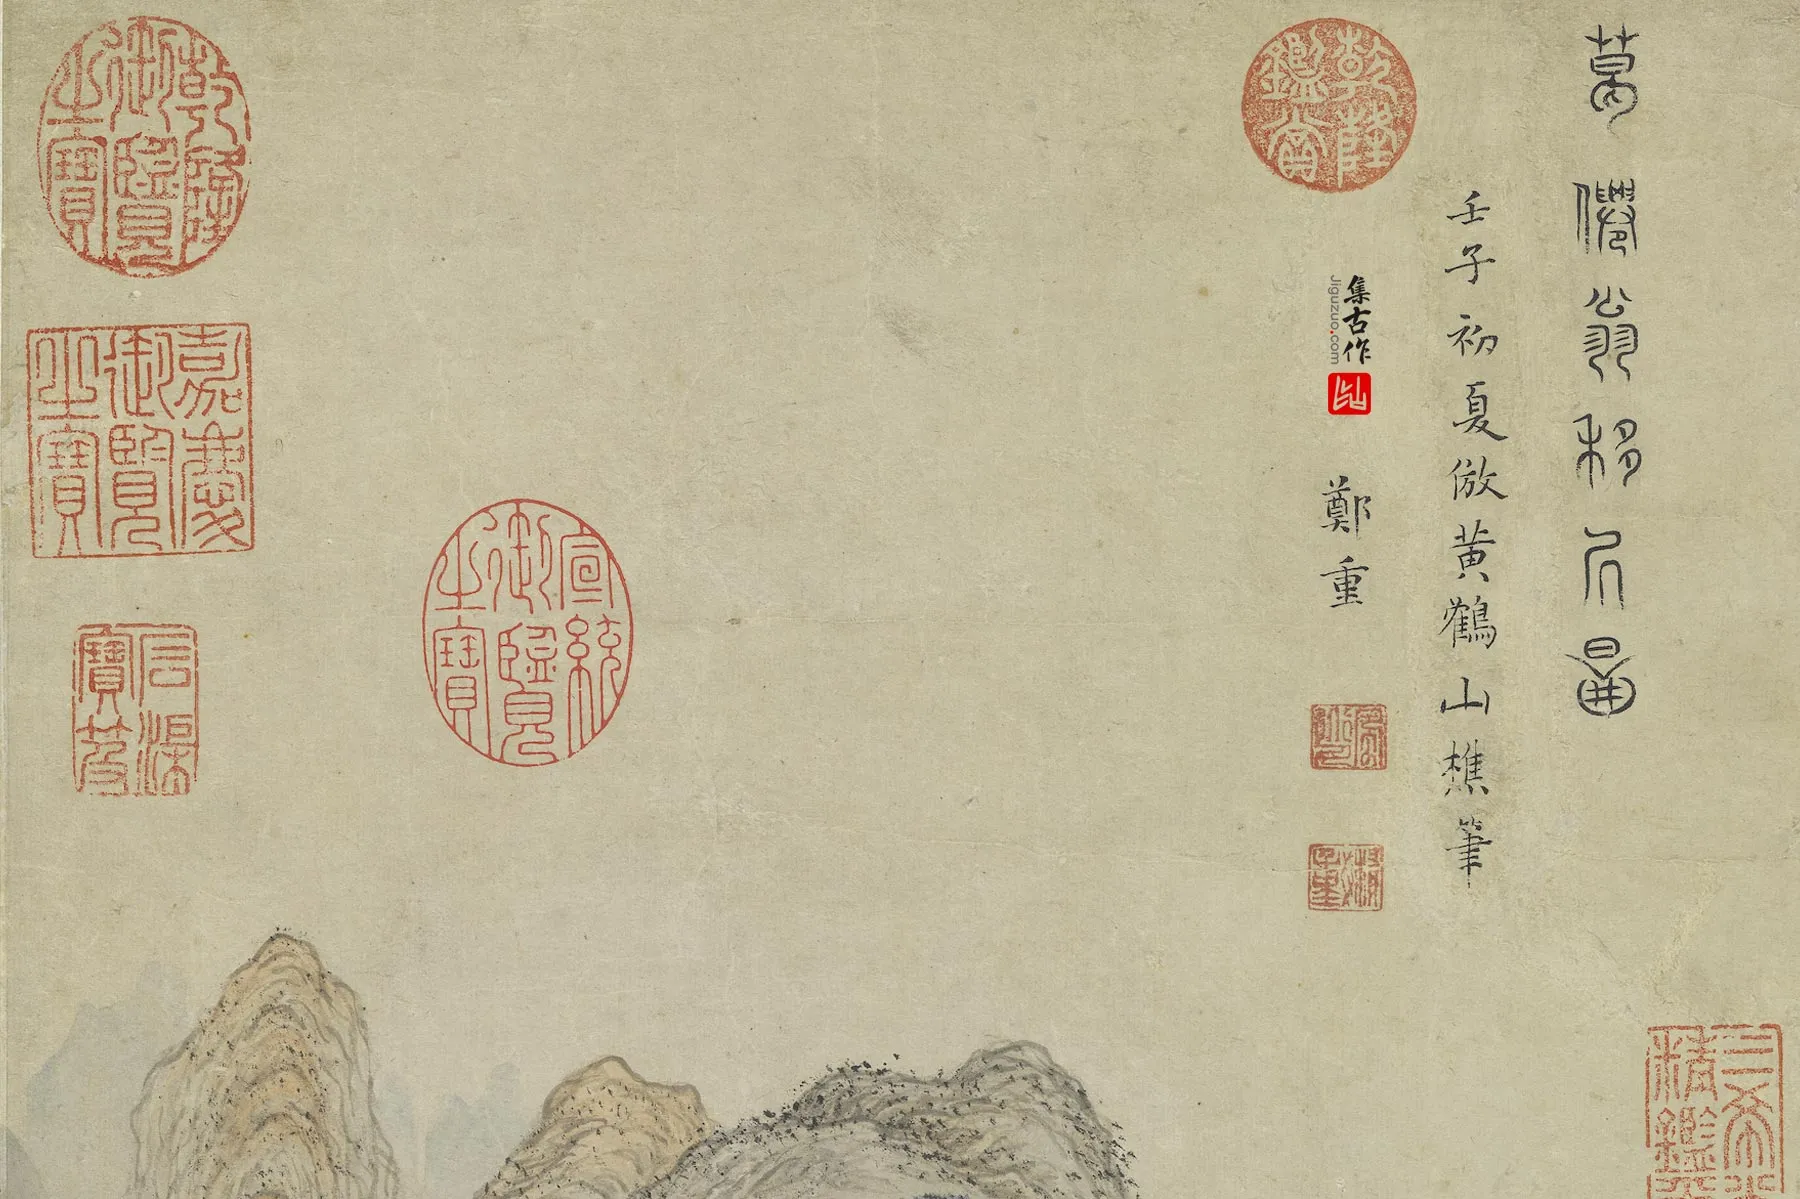 葛僊翁移居圖
壬子初夏倣黄鶴山樵筆
鄭重
乾隆鑑賞
集古作
Jiguzuo.com
宣統御覽之寶
乾隆御覽之寶
嘉慶御覽之寶
石渠寶笈
三希
精鑑